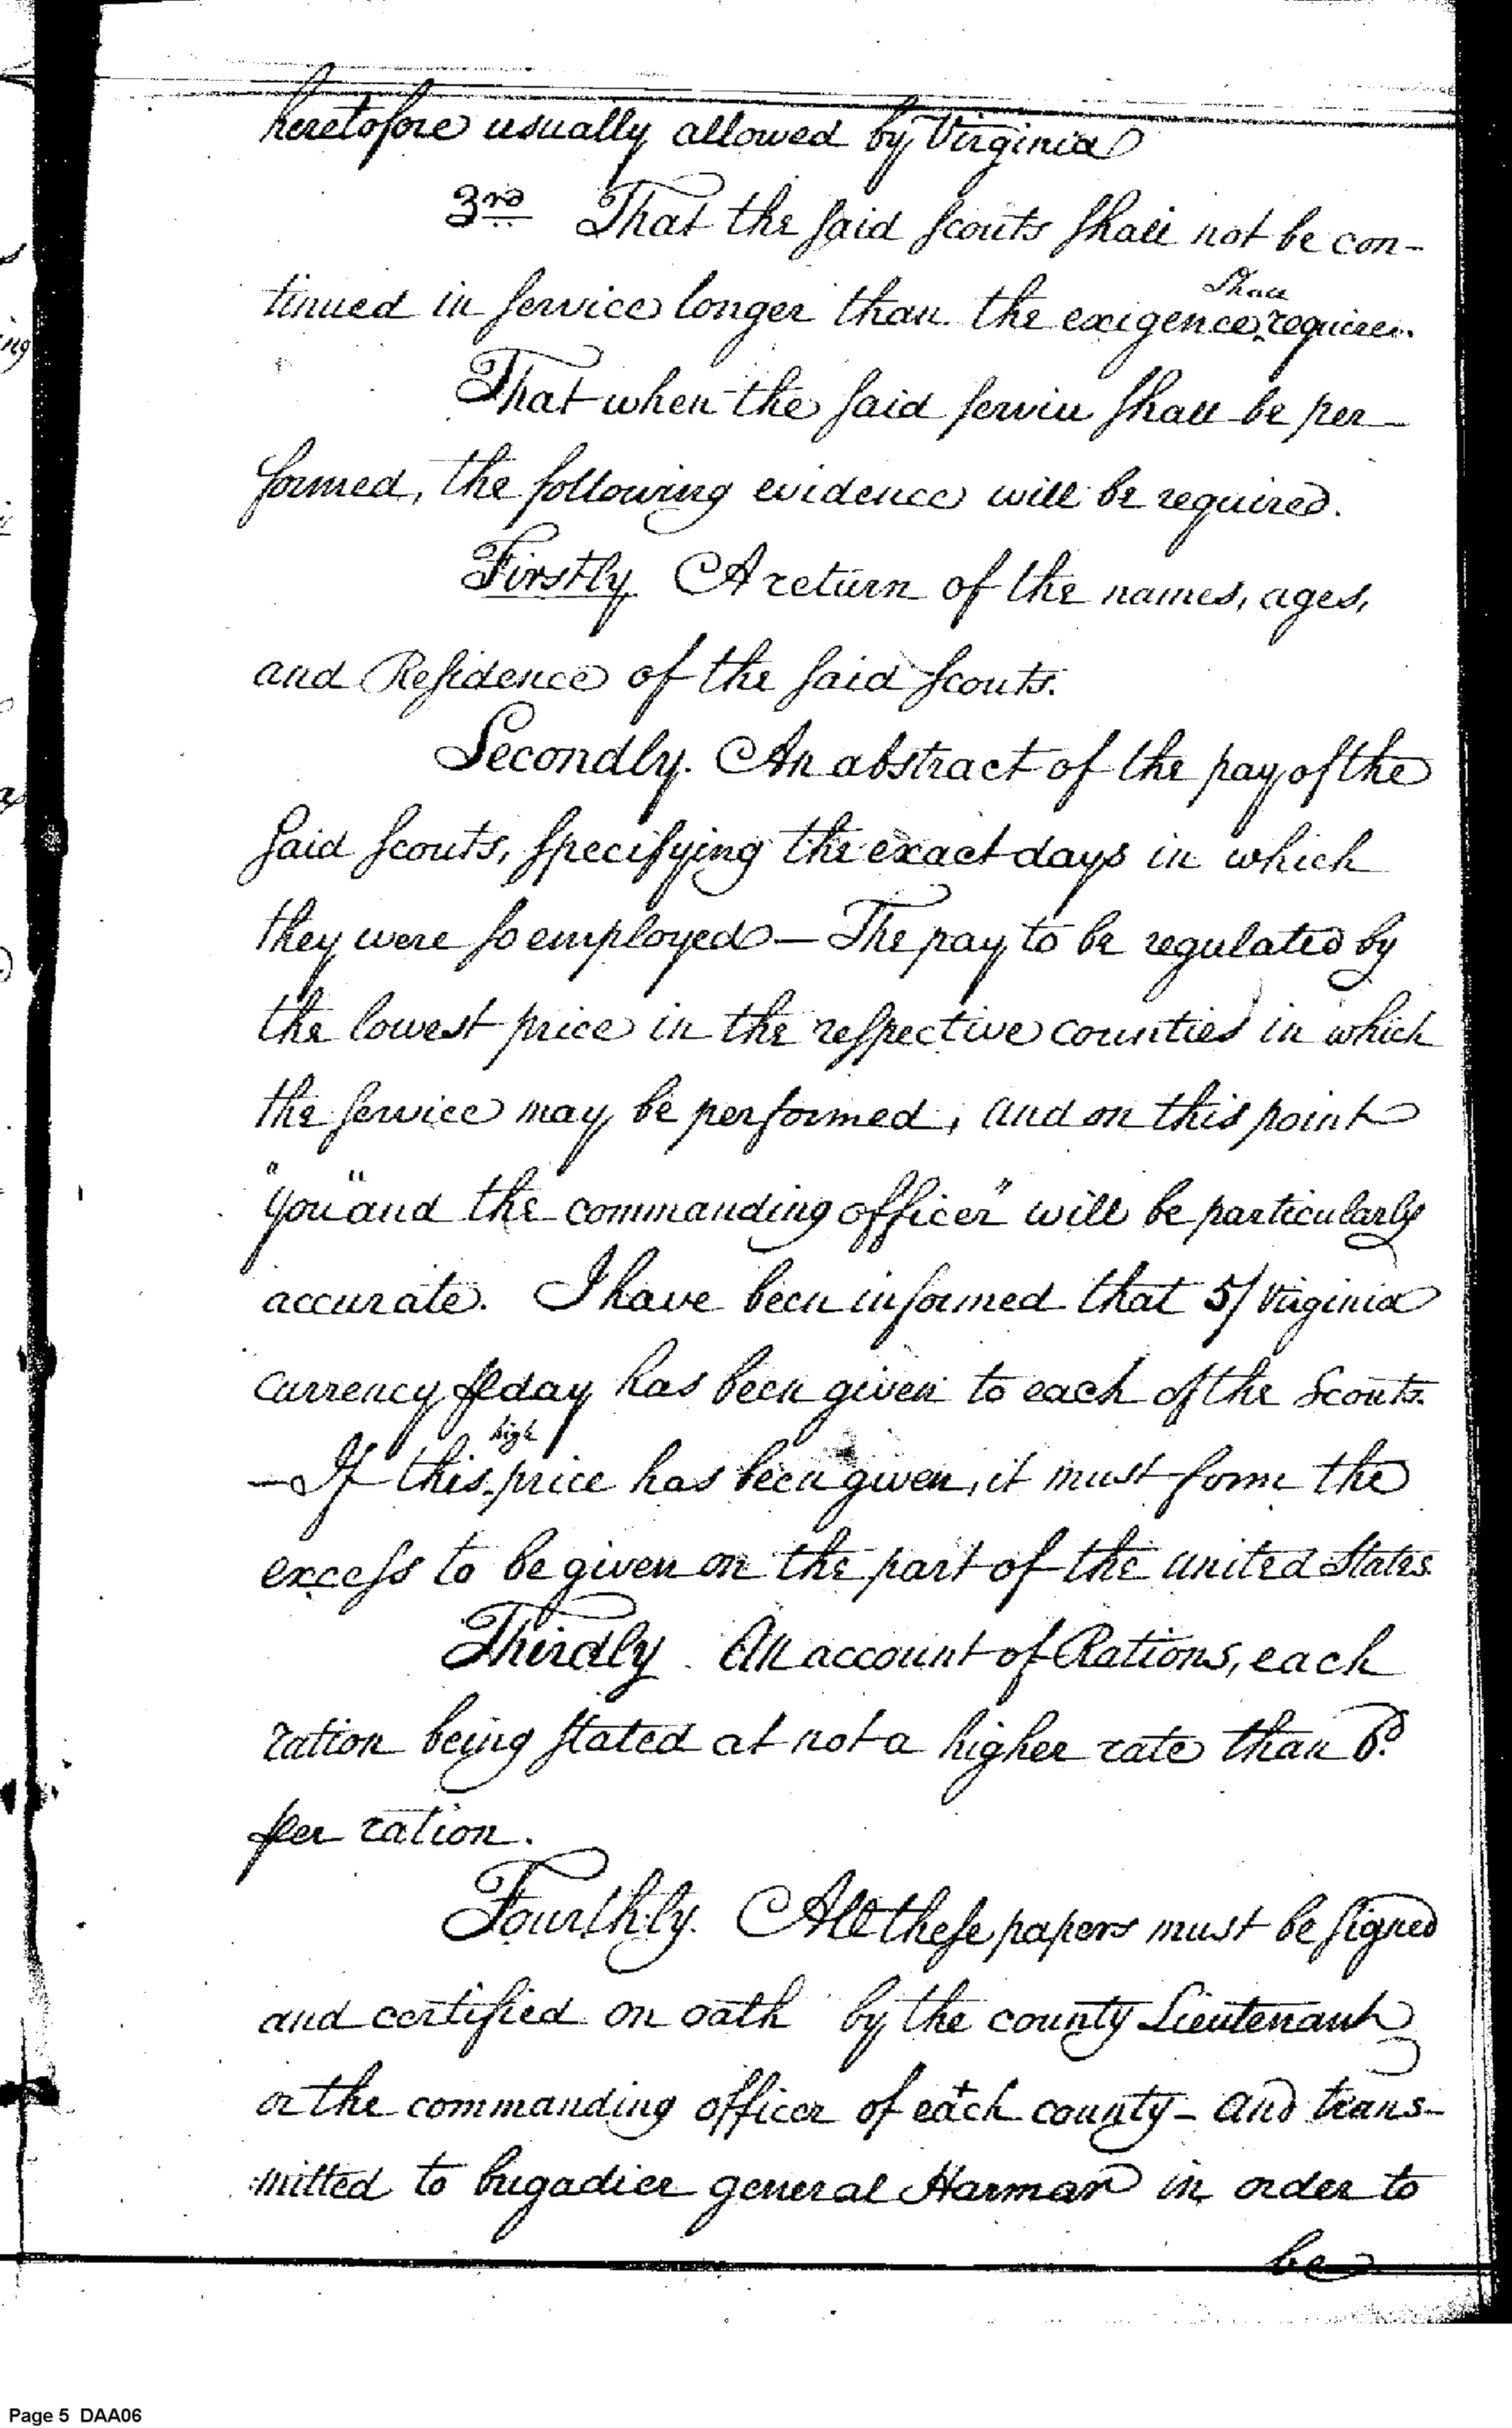 heretofore usually allowed by Virginia
3rd That the said scouts shall not be con-
tinued in service longer than the exigence shall require.
That when the said service shall be per-
formed, the following evidence will be required.
Firstly A return of the names, ages,
and Residence of the said scouts.
Secondly. An abstract of the pay of the
said scouts, specifying the exact days in which
they were so employed — The pay to be regulated by
the lowest price in the respective counties in which
the service may be performed, and on this point
"you" and the commanding officer" will be particularly
accurate. I have been informed that 5/ Virginia
currency ⅌ day has been given to each of the Scouts.
— If this high price has been given, it must form the
excess to be given on the part of the united States.
Thirdly. An account of Rations, each
ration being stated at not a higher rate than
per ration.
Fourthly. All these papers must be signed
and certified on oath by the county Lieutenant
or the commanding officer of each county - and trans-
mitted to brigadier general Harmar in order to
be
Page 5 DAA06